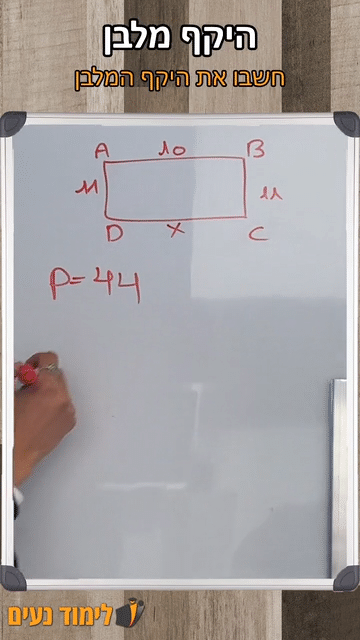 היקף מלבן
חשבו את היקף המלבן
A 10 B
11 11
D X C
P=44
לימוד נעים